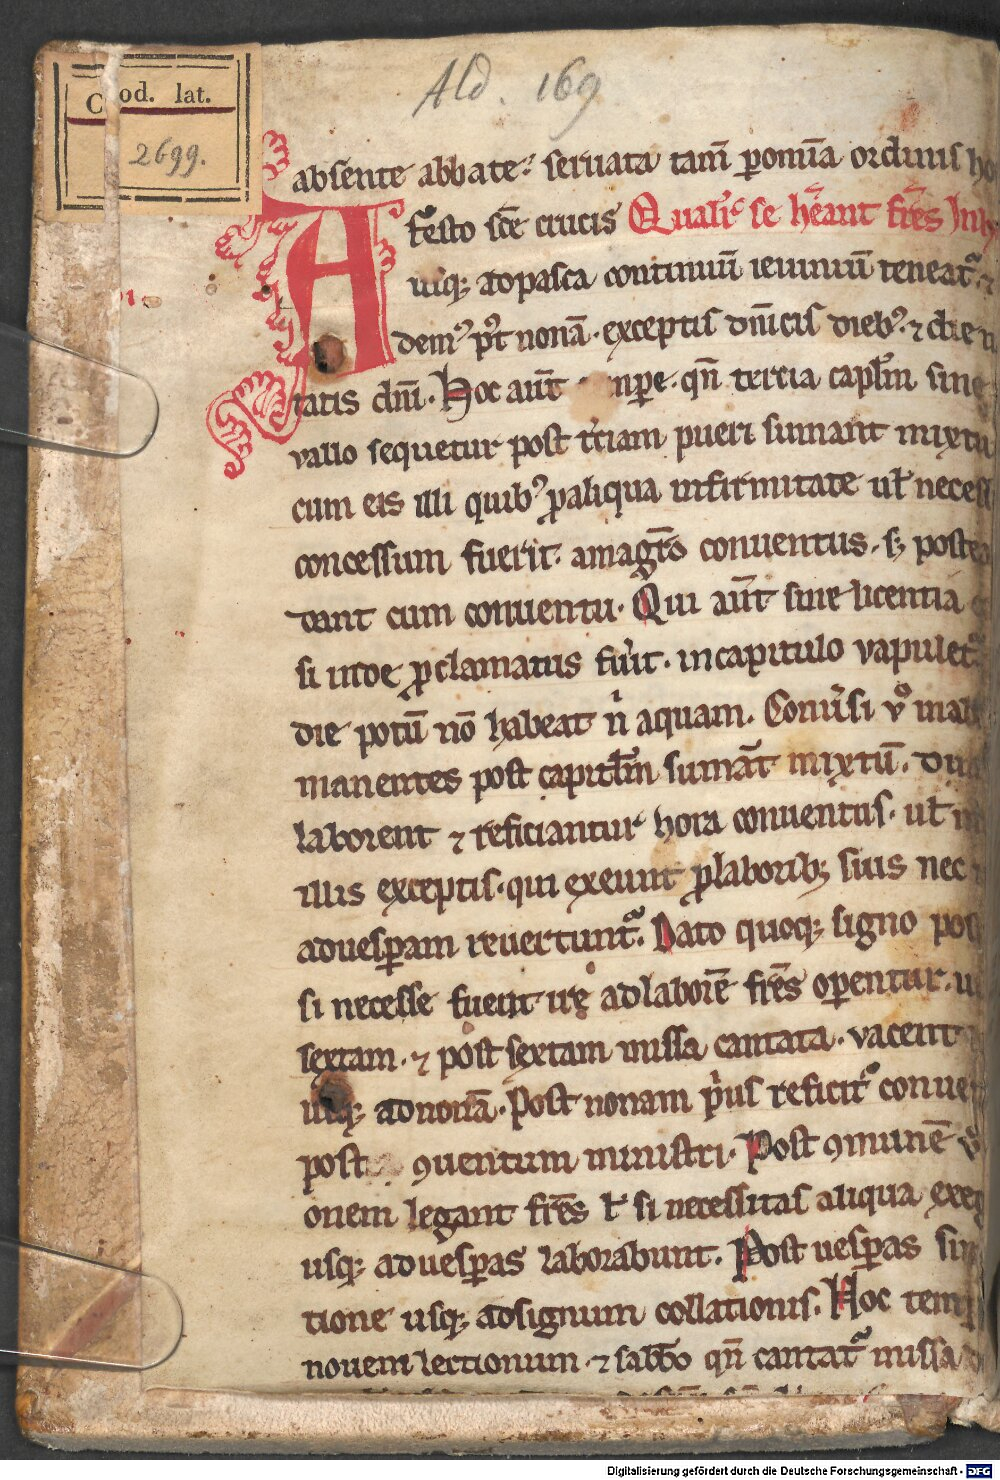 Ald. 169
Cod. lat.
2699.
absente abbate seruata tam̄ ꝑ om̄ia ordinis
A festo sc̄e crucis Qualit̛ se hēant fr̄es
usq; ad pasca continuū ieiuniū teneat᷑
dem᷒ p̄t nonā. exceptis dn̄icis dieb᷒. ⁊ die
tatis dn̄i. Hoc aūt qn̄ tercia capl̄m sine
uallo sequetur post t̛ciam pueri sumant
cum eis illi quib᷒ ꝓ aliqua infirmitate ul̄
concessum fuerit. a mag̅ro conuentus. s;
tant cum conuentu. Qui aūt sine licentia
si inde ꝓclamatus fưit. in capitulo uapulet᷑
die potū nō habeat n̛ aquam. Conưsi vͦ
manentes post capitl̄m sumāt mixtū.
laborent ⁊ reficiantur hora conuentus. ul̄
illis exceptis. qui exeunt ꝓ laborib; suis nec
ad uesꝑam reuertunt᷑. Dato quoq; signo
si necesse fuerit ad laborē fr̄es oꝑentur.
sextam. ⁊ post sextam missa cantata. vacent
usq; ad nonā. Post nonam p̛us reficit᷑
post ꝯuentum ministri. Post ꝯmunē
onem legant fr̄es ł si necessitas aliqua
usq; ad uesꝑas laborabunt. Post uesꝑas
tione usq; ad signum collationis. Hoc
nouem lectionum. ⁊ sabb̄o qn̄ cantat᷑ missa
Digitalisierung gefördert durch die Deutsche Forschungsgemeinschaft - DFG